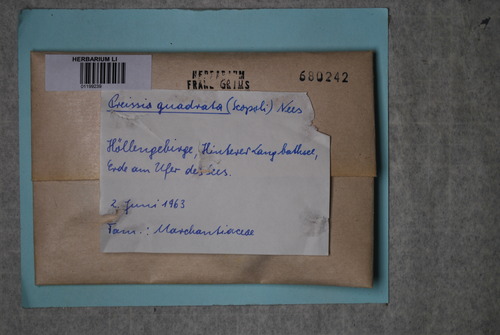 HERBARIUM LI
HERBARIUM
FRANZ GRIMS
680242
Preissia quadrata (Scopoli) Nees
Höllengebirge, Hinterer Langbathsee,
Erde am Ufer des Sees.
2. Juni 1963
Fam.: Marchantiaceae